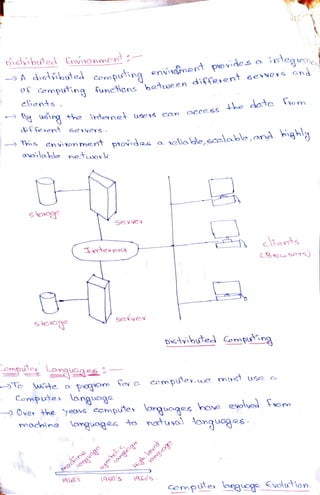 Distributed Environment :-
→ A distributed computing envirnoment provides a
of computing functions between different servers and
clients.
→ By using the internet users can access the data from
different servers.
→ This environment provides a reliable, scalable, and highly
available network
storage
Server
Internet
clients
(Browsers)
storage
server
Distributed Computing
Computer Languages :-
→ To Write a program for a computer, we must use a
Computer language
→ Over the years computer languages have evolved from
machine languages to natural languages.
machine language
symbolic language
High level language
1940's 1950's 1960's
Computer language Evolution.